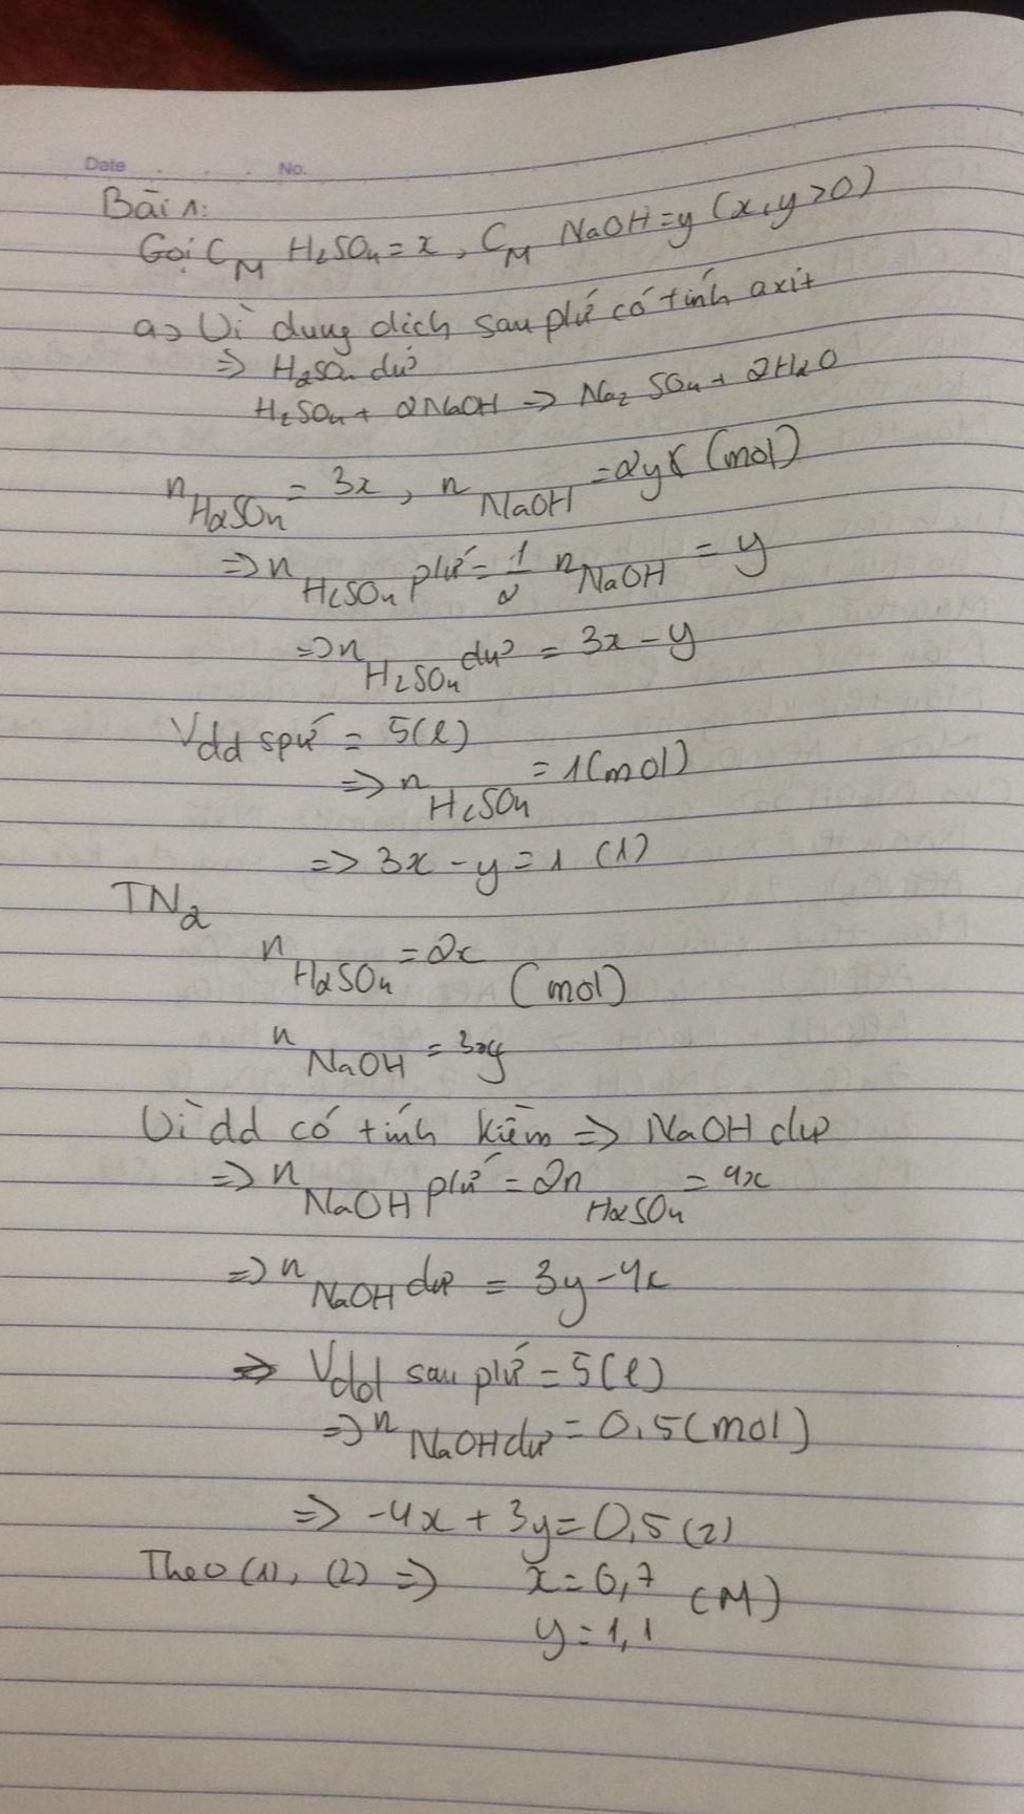 Date No.
Bài 1:
Gọi C_M H₂SO₄ = x, C_M NaOH = y (x, y > 0)
a, Vì dung dịch sau phứ có tính axit
=> H₂SO₄ dư
H₂SO₄ + 2NaOH => Na₂SO₄ + 2H₂O
n H₂SO₄ = 3x, n NaOH = 2y (mol)
=> n H₂SO₄ phứ = 1/2 n NaOH = y
=> n H₂SO₄ dư = 3x - y
Vdd spứ = 5(l)
=> n H₂SO₄ = 1(mol)
=> 3x - y = 1 (1)
TN₂
n H₂SO₄ = 2x
(mol)
n NaOH = 3y
Vì dd có tính kiềm => NaOH dư
=> n NaOH phứ = 2n H₂SO₄ = 4x
=> n NaOH dư = 3y - 4x
=> Vdd sau phứ = 5(l)
=> n NaOH dư = 0,5(mol)
=> -4x + 3y = 0,5 (2)
Theo (1), (2) => x = 0,7 (M)
y = 1,1